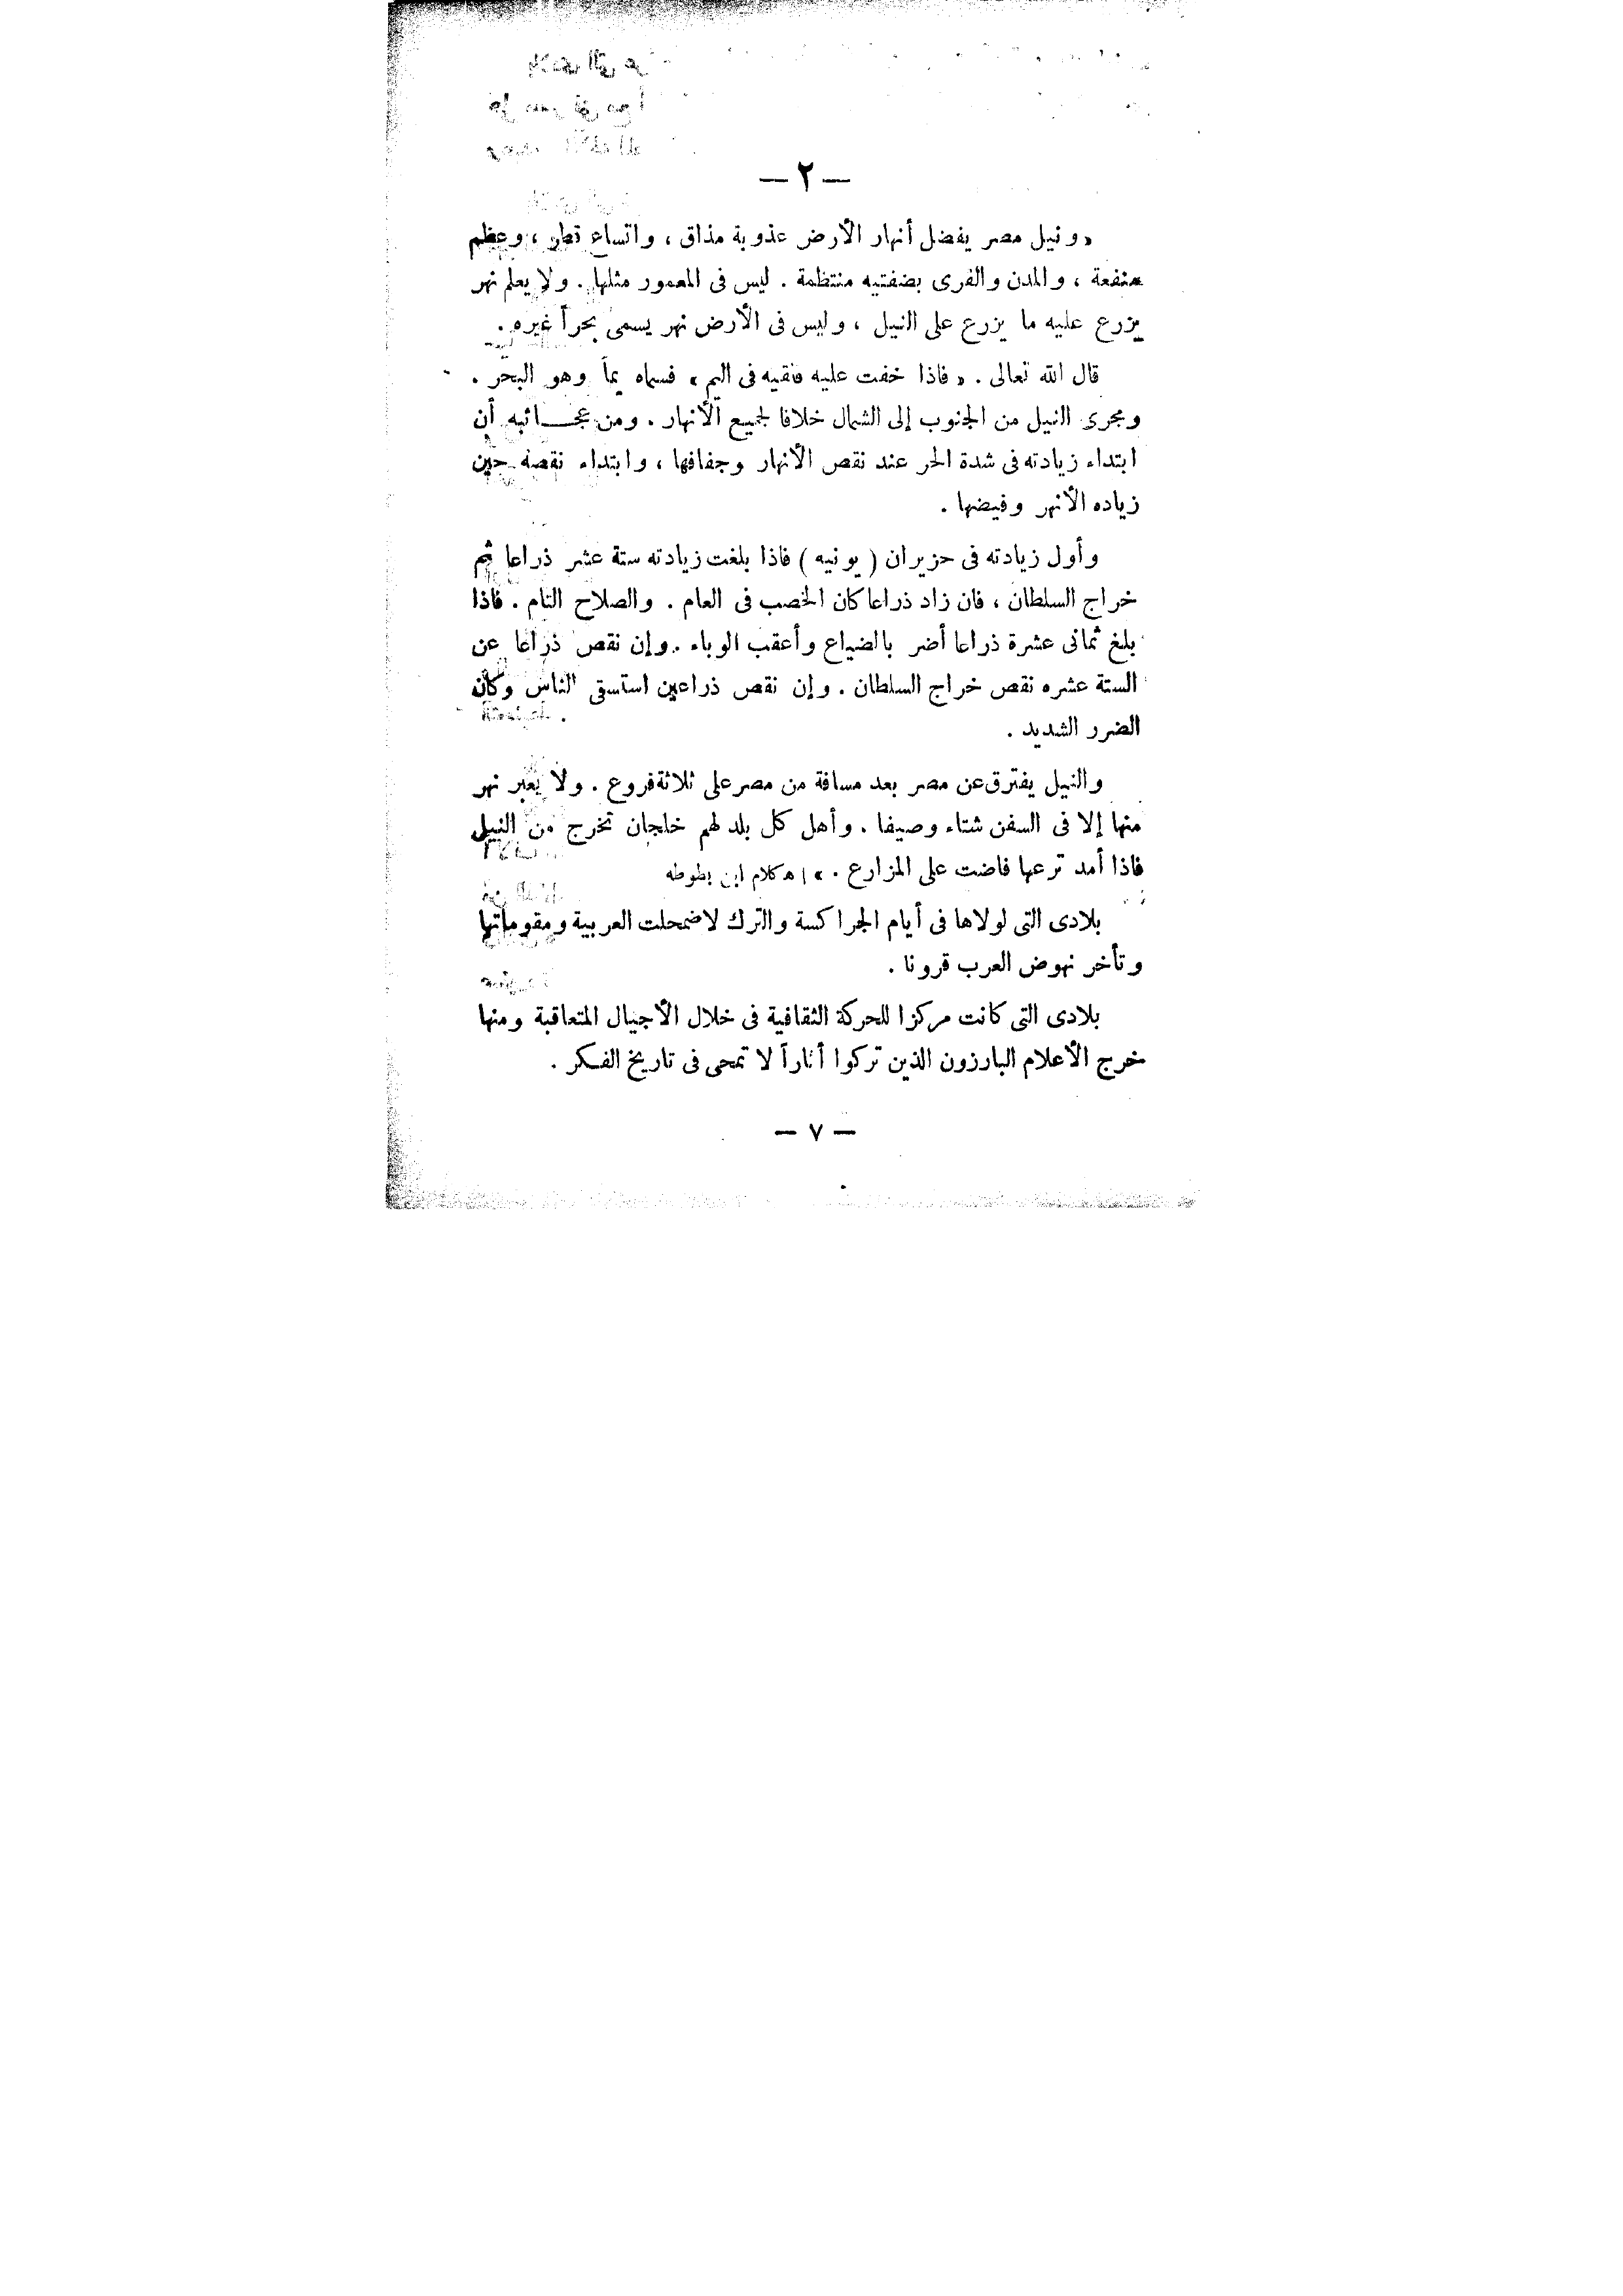 — ٢ —
« ونيل مصر يفضل أنهار الأرض عذوبة مذاق ، واتساع قطر ، وعظم
منفعة ، والمدن والقرى بضفتيه منتظمة . ليس فى المعمور مثلها . ولا يعلم نهر
يزرع عليه ما يزرع على النيل ، وليس فى الأرض نهر يسمى بحراً غيره .
قال الله تعالى . « فاذا خفت عليه فالقيه فى اليم » فسماه يماً وهو البحر .
ومجرى النيل من الجنوب إلى الشمال خلافا لجميع الأنهار . ومن عجائبه أن
ابتداء زيادته فى شدة الحر عند نقص الأنهار وجفافها ، وابتداء نقصه حين
زياده الأنهر وفيضها .
وأول زيادته فى حزيران ( يونيه ) فاذا بلغت زيادته ستة عشر ذراعا تم
خراج السلطان ، فان زاد ذراعا كان الخصب فى العام . والصلاح التام . فاذا
بلغ ثمانى عشرة ذراعا أضر بالضياع وأعقب الوباء . وإن نقص ذراعا عن
الستة عشره نقص خراج السلطان . وإن نقص ذراعين استسقى الناس وكان
الضرر الشديد .
والنيل يفترق عن مصر بعد مسافة من مصر على ثلاثة فروع . ولا يعبر نهر
منها إلا فى السفن شتاء وصيفا . وأهل كل بلد لهم خلجان تخرج من النيل
فاذا أمد ترعها فاضت على المزارع . » اه كلام ابن بطوطه
بلادى التى لولاها فى أيام الجراكسة والترك لاضمحلت العربية ومقوماتها
وتأخر نهوض العرب قرونا .
بلادى التى كانت مركزا للحركة الثقافية فى خلال الأجيال المتعاقبة ومنها
خرج الأعلام البارزون الذين تركوا أثاراً لا تمحى فى تاريخ الفكر .
— ٧ —